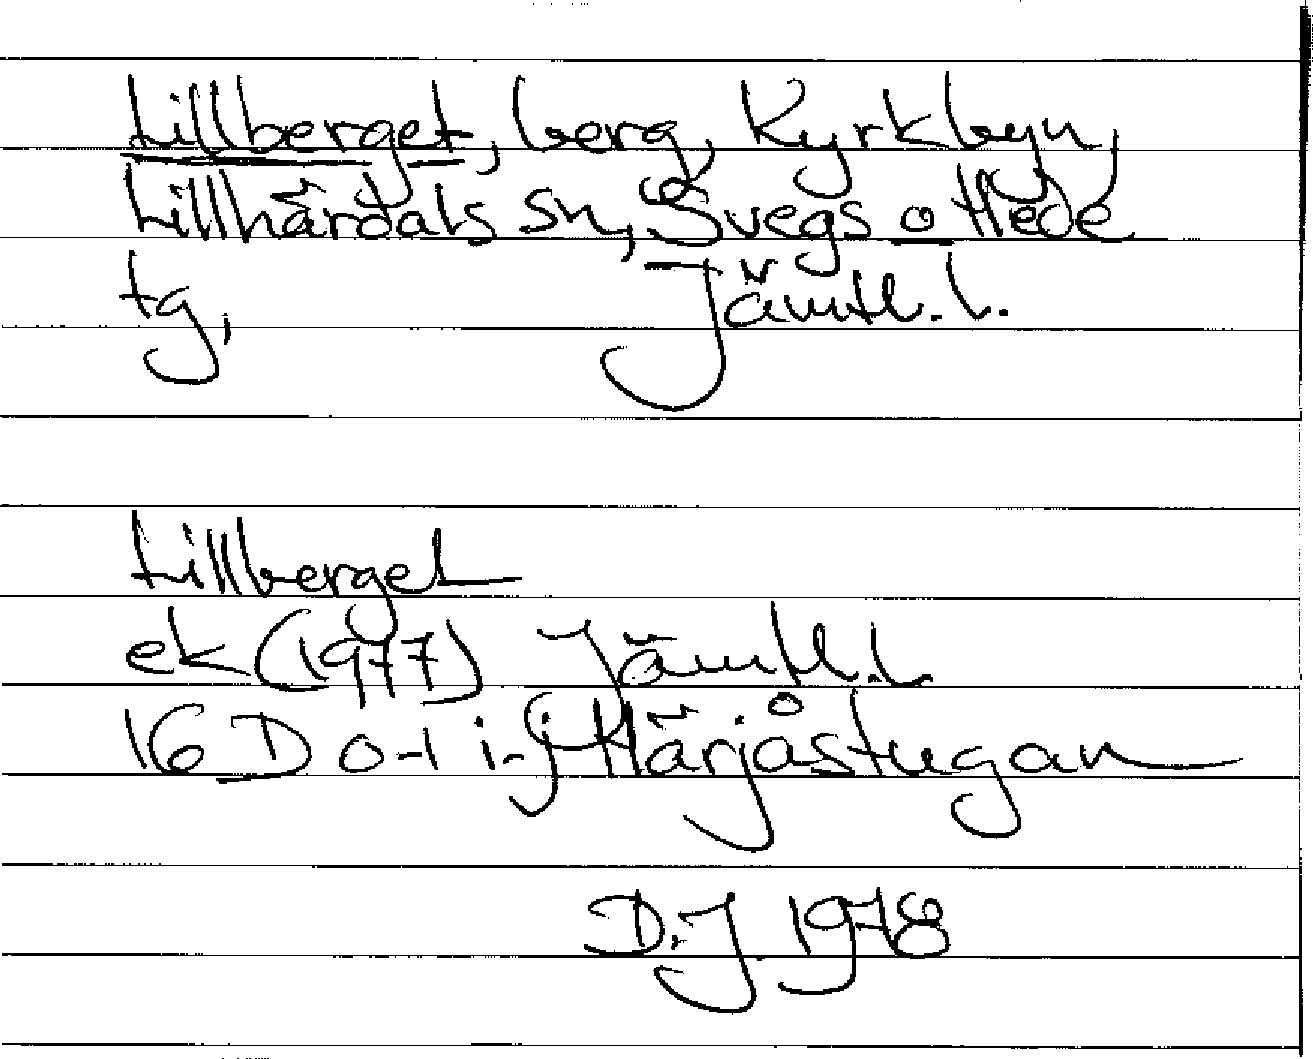 Lillberget, berg, Kyrkbyn,
Lillhärdals sn, Svegs o Hede
tg, Jämtl. l.
Lillberget
ek (1977) Jämtl. l.
16 D o-1 i-j Härjåstugan
D.J. 1978